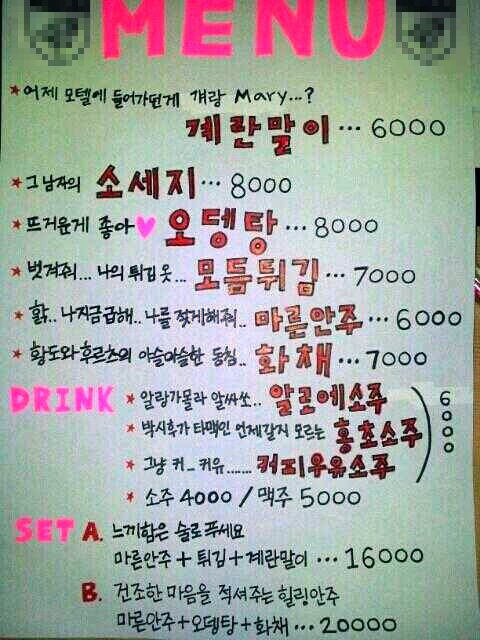 MENU
★ 어제 모텔에 들어가던게 걔랑 Mary...?
계란말이 ... 6000
★ 그 남자의 소세지 ... 8000
★ 뜨거운게 좋아♥ 오뎅탕 ... 8000
★ 벗겨줘... 나의 튀김옷... 모듬튀김 ... 7000
★ 핡.. 나지금급해.. 나를 젖게해줘.. 마른안주 ... 6000
★ 황도와후르츠의 아슬아슬한 동침.. 화채 ... 7000
DRINK ★ 알랑가몰라 알싸쏘.. 알로에소주
★ 박시후가 타맥인 언제갈지 모르는 홍초소주
★ 그냥 커_커유...... 커피우유소주
) 6000
★ 소주 4000 / 맥주 5000
SET A. 느끼함은 술로푸세요
마른안주 + 튀김 + 계란말이 ... 16000
B. 건조한 마음을 적셔주는 힐링안주
마른안주 + 오뎅탕 + 화채 ... 20000